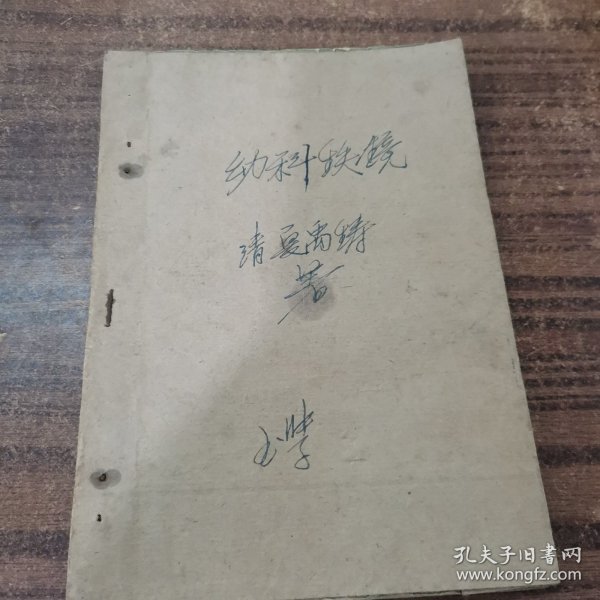 幼科铁镜
清夏禹铸
著
孔夫子旧书网
www.kongfz.com